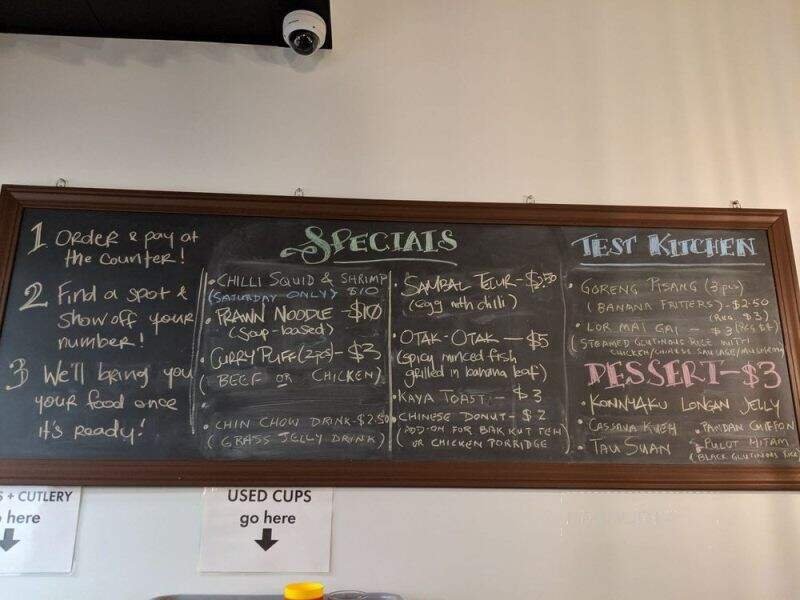 1 Order & pay at
the counter!
2 Find a spot &
show off your
number!
3 We'll bring you
your food once
it's ready!
SPECIALS
• CHILLI SQUID & SHRIMP
(SATURDAY ONLY) $10
• PRAWN NOODLE - $10
(soup-based)
• CURRY PUFF (2pcs) - $3
(BEEF OR CHICKEN)
• CHIN CHOW DRINK - $2.50
(GRASS JELLY DRINK)
• SAMBAL TELUR - $2.50
(egg with chilli)
• OTAK-OTAK - $5
(spicy minced fish
grilled in banana leaf)
• KAYA TOAST - $3
• CHINESE DONUT - $2
(ADD-ON FOR BAK KUT TEH
OR CHICKEN PORRIDGE
TEST KITCHEN
• GORENG PISANG (3 pcs)
(BANANA FRITTERS) - $2.50
(Reg. $3)
• LOR MAI GAI - $3
(STEAMED GLUTINOUS RICE WITH
CHICKEN/CHINESE SAUSAGE/MUSHROOM)
DESSERT - $3
• KONNYAKU LONGAN JELLY
• CASSAVA KUEH
• PANDAN CHIFFON
• TAU SUAN
• PULUT HITAM
(BLACK GLUTINOUS RICE)
S + CUTLERY
go here
USED CUPS
go here